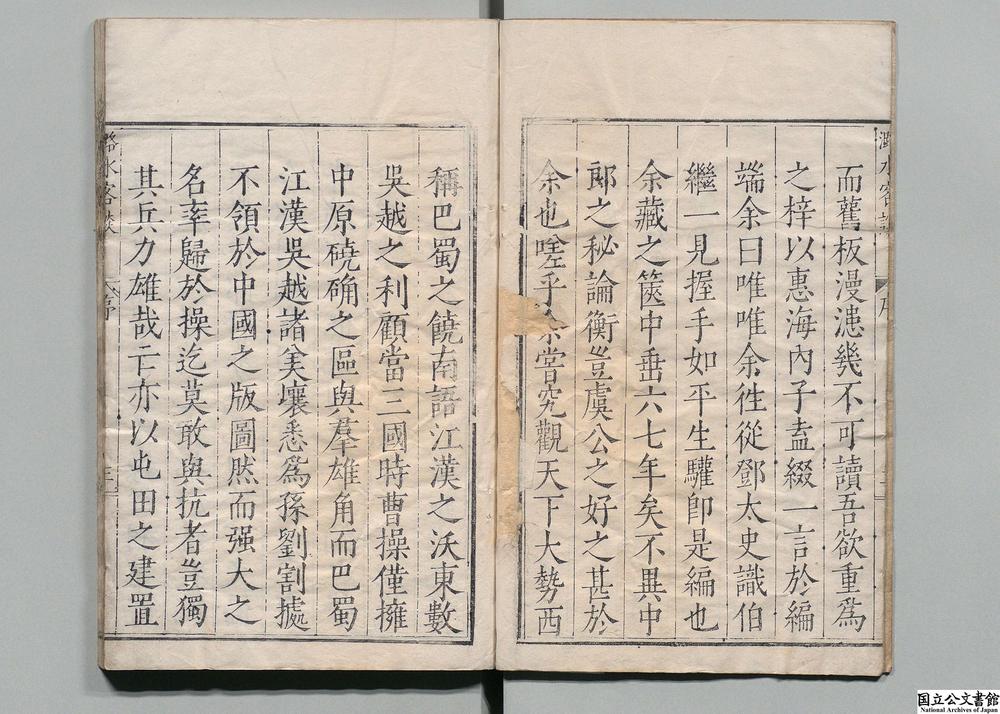 而舊板漫漶幾不可讀吾欲重為
之梓以惠海內子盍綴一言於編
端余曰唯唯余徃從鄧太史識伯
繼一見握手如平生驩卽是編也
余藏之篋中垂六七年矣不異中
郎之秘論衡豈虞公之好之甚於
余也嗟乎余嘗究觀天下大勢西
稱巴蜀之饒南語江漢之沃東數
吳越之利顧當三國時曹操僅擁
中原磽确之區與羣雄角而巴蜀
江漢吳越諸美壤悉為孫劉割據
不領於中國之版圖然而强大之
名率歸於操迄莫敢與抗者豈獨
其兵力雄哉亡亦以屯田之建置
潞水客談
序
三
国立公文書館
National Archives of Japan